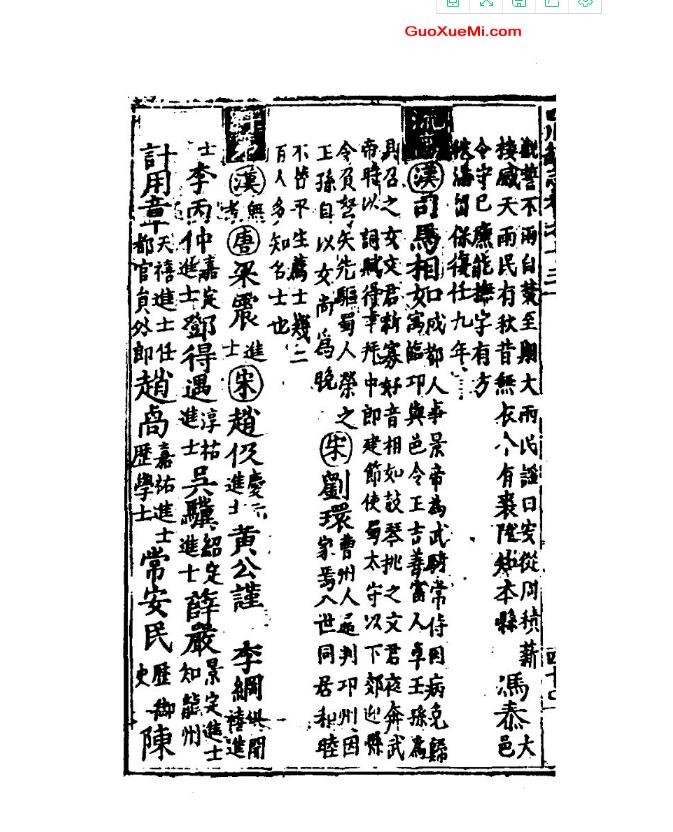 GuoXueMi.com
觀誓不雨自焚至期大雨民謠曰安從周積薪
接威天雨民有秋昔無衣今有裘陞知本縣 馮泰 大邑
令守已廉能撫字有方
秩滿留保復任九年
流寓 漢 司馬相如 成都人事景帝為武騎常侍因病免歸
寓臨邛與邑令王吉善富人卓王孫為
具召之女文君新寡好音相如鼓琴挑之文君夜奔武
帝時以詞賦得幸拜中郎建節使蜀太守以下郊迎縣
令負弩矢先驅蜀人榮之
王孫自以女尚為晚
宋 劉環 曹州人通判邛州因
家焉八世同居和睦
不替平生薦士幾二
百人多知名士也
漢 無考 唐 梁震 進士 宋 趙伋 慶元進士 黃公謹 李綱 俱開禧進
士 李丙仲 嘉定進士 鄧得遇 淳祐進士 吳驥 紹定進士 薛嚴 景定進士知龍州
計用章 天禧進士任都官員外郎 趙卨 嘉祐進士歷學士 常安民 歷御史 陳